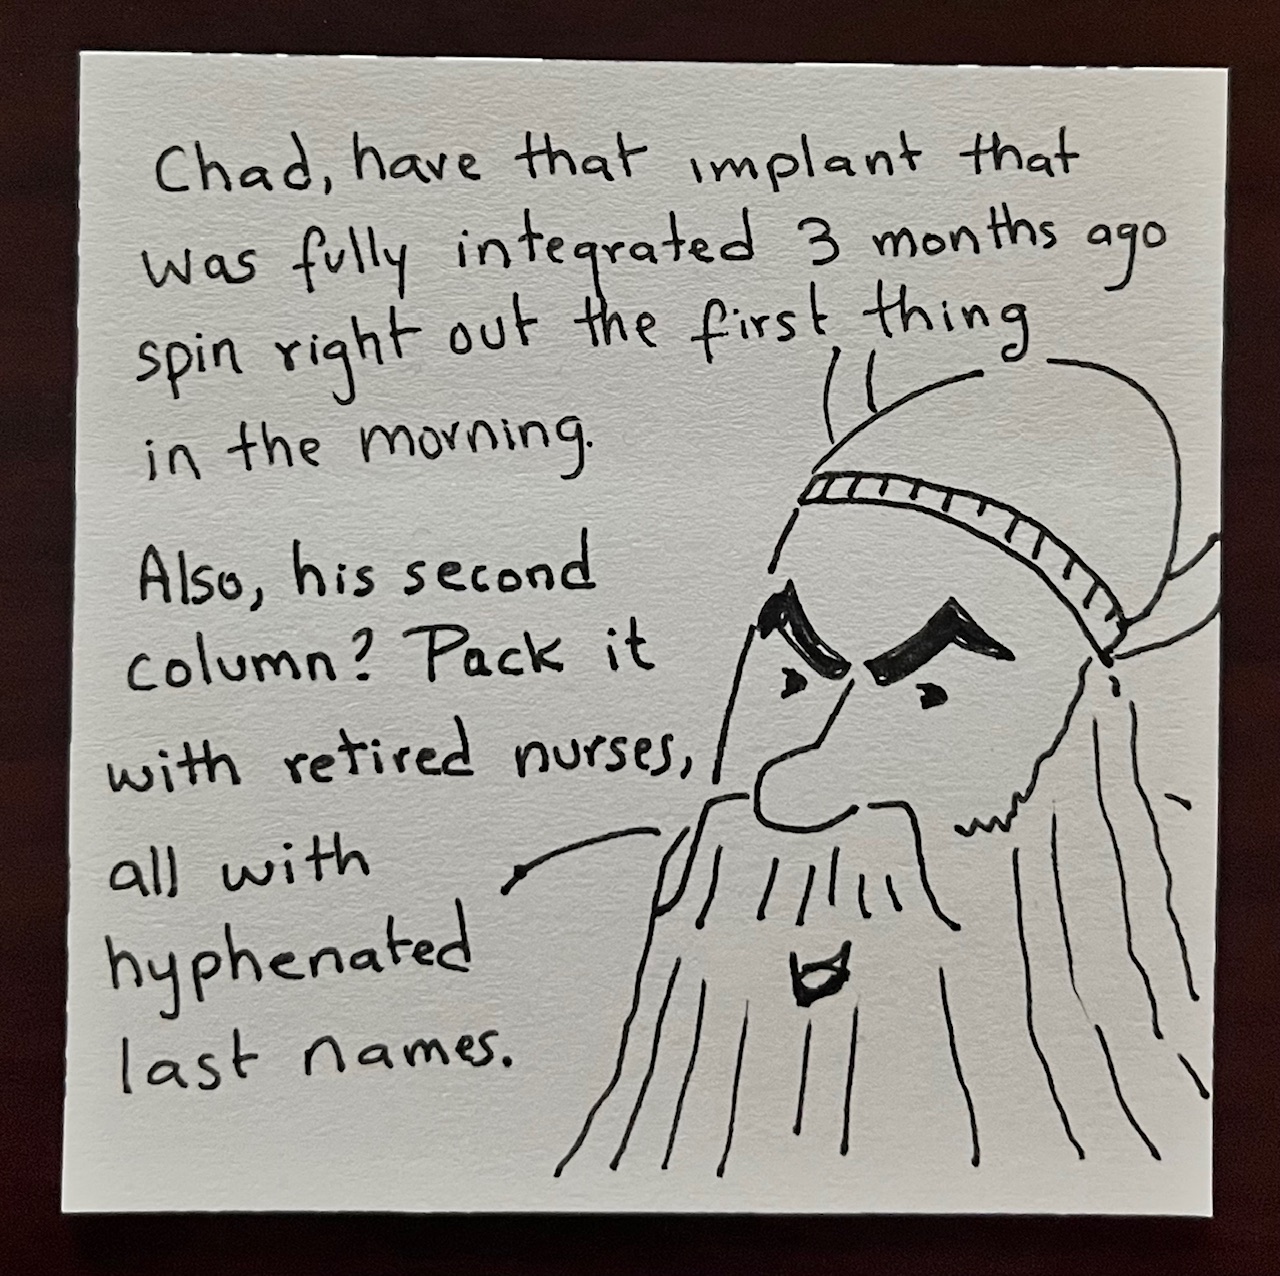 Chad, have that implant that
was fully integrated 3 months ago
spin right out the first thing
in the morning.
Also, his second
column? Pack it
with retired nurses,
all with
hyphenated
last names.